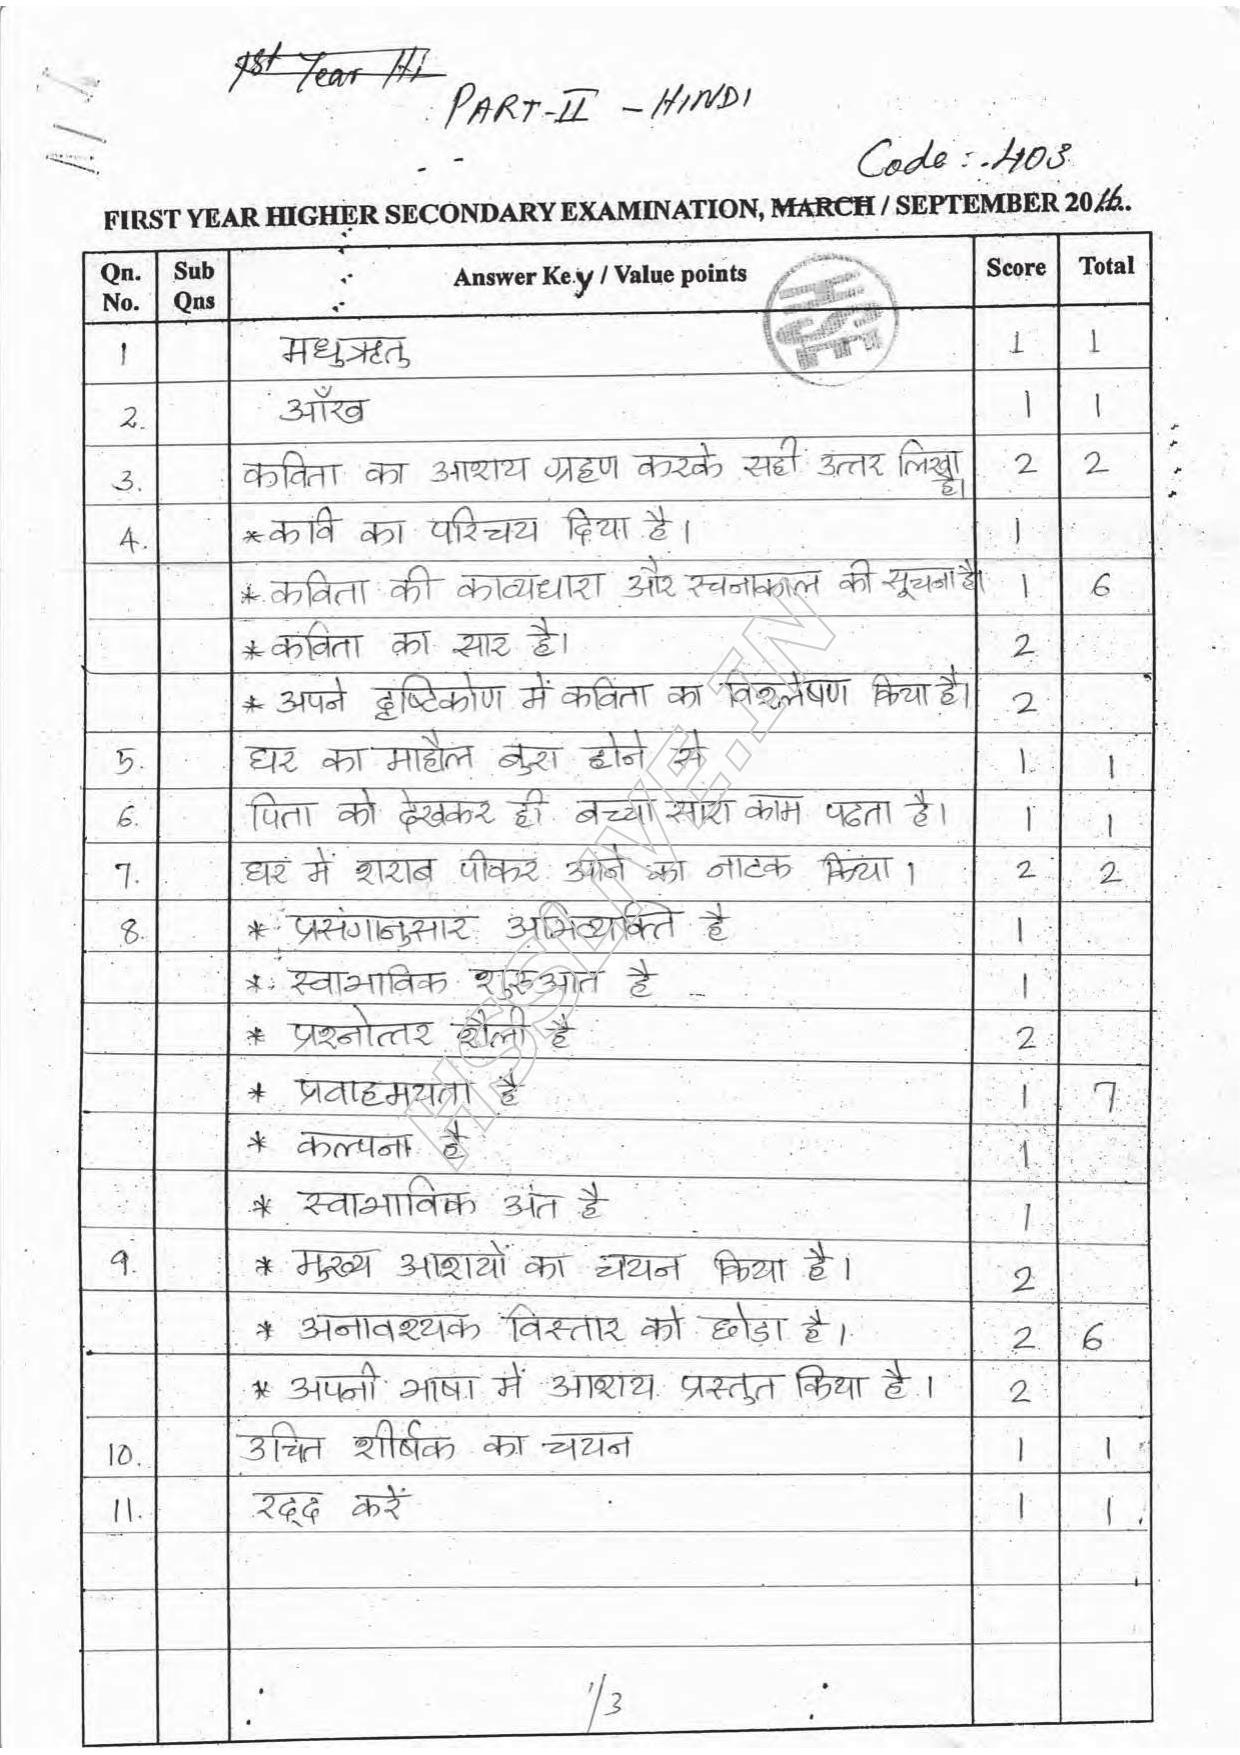 1st Year Hi
PART-II - HINDI
Code :- 403
FIRST YEAR HIGHER SECONDARY EXAMINATION, MARCH / SEPTEMBER 2016.
Qn. No. Sub Qns Answer Key / Value points Score Total
1 मधुऋतु 1 1
2. आँख 1 1
3. कविता का आशय ग्रहण करके सही उत्तर लिखा है। 2 2
4. * कवि का परिचय दिया है। 1
* कविता की काव्यधारा और रचनाकाल की सूचना है। 1 6
* कविता का सार है। 2
* अपने दृष्टिकोण में कविता का विश्लेषण किया है। 2
5. घर का माहौल बुरा होने से 1 1
6. पिता को देखकर ही बच्चा सारा काम पढता है। 1 1
7. घर में शराब पीकर आने का नाटक किया। 2 2
8. * प्रसंगानुसार अभिव्यक्ति है 1
* स्वाभाविक शुरुआत है 1
* प्रश्नोत्तर शैली है 2
* प्रवाहमयता है 1 7
* कल्पना है 1
* स्वाभाविक अंत है 1
9. * मुख्य आशयों का चयन किया है। 2
* अनावश्यक विस्तार को छोड़ा है। 2 6
* अपनी भाषा में आशय प्रस्तुत किया है। 2
10. उचित शीर्षक का चयन 1 1
11. रद्द करें 1 1
1/3
HSSLIVE.IN